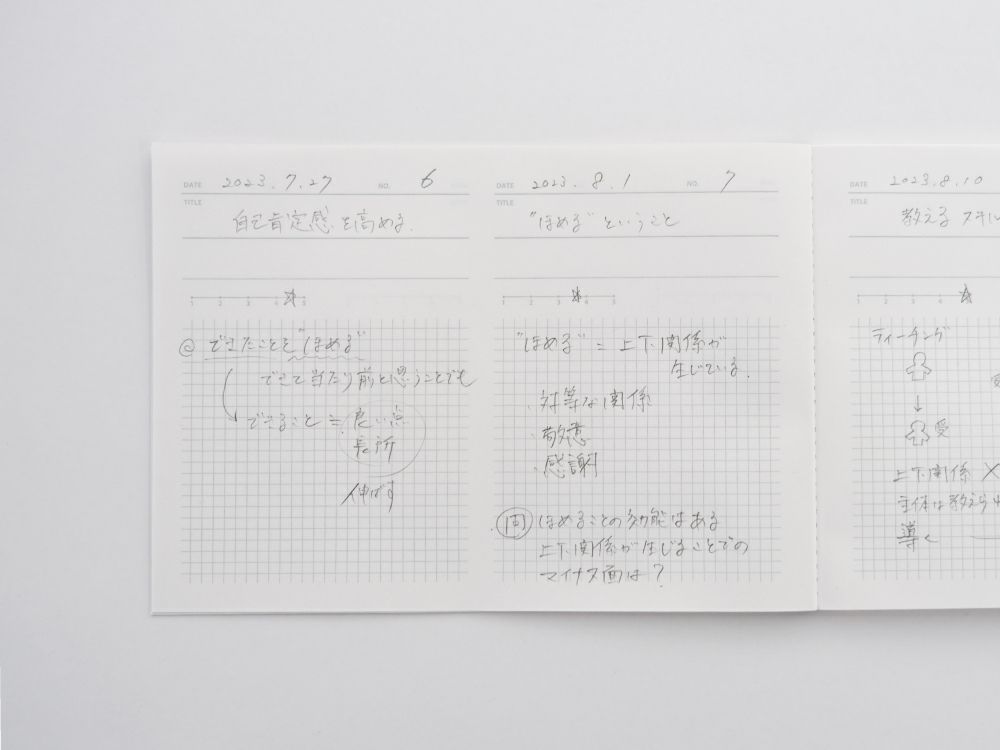 DATE 2023.7.27 NO. 6
TITLE
自己肯定感を高める.
1 2 3 4 5
@ できたことを"ほめる"
できて当たり前と思うことでも
できること = 良い点
長所
伸ばす
DATE 2023.8.1 NO. 7
TITLE
"ほめる"ということ
1 2 3 4 5
"ほめる" = 上下関係が
生じている.
・対等な関係
・敬意
・感謝
問 ほめることの効能はある
上下関係が生じることでの
マイナス面は?
DATE 2023.8.10
TITLE
教えるスキル
1 2 3 4
ティーチング
↓
受
上下関係 ×
主体は教える
導く